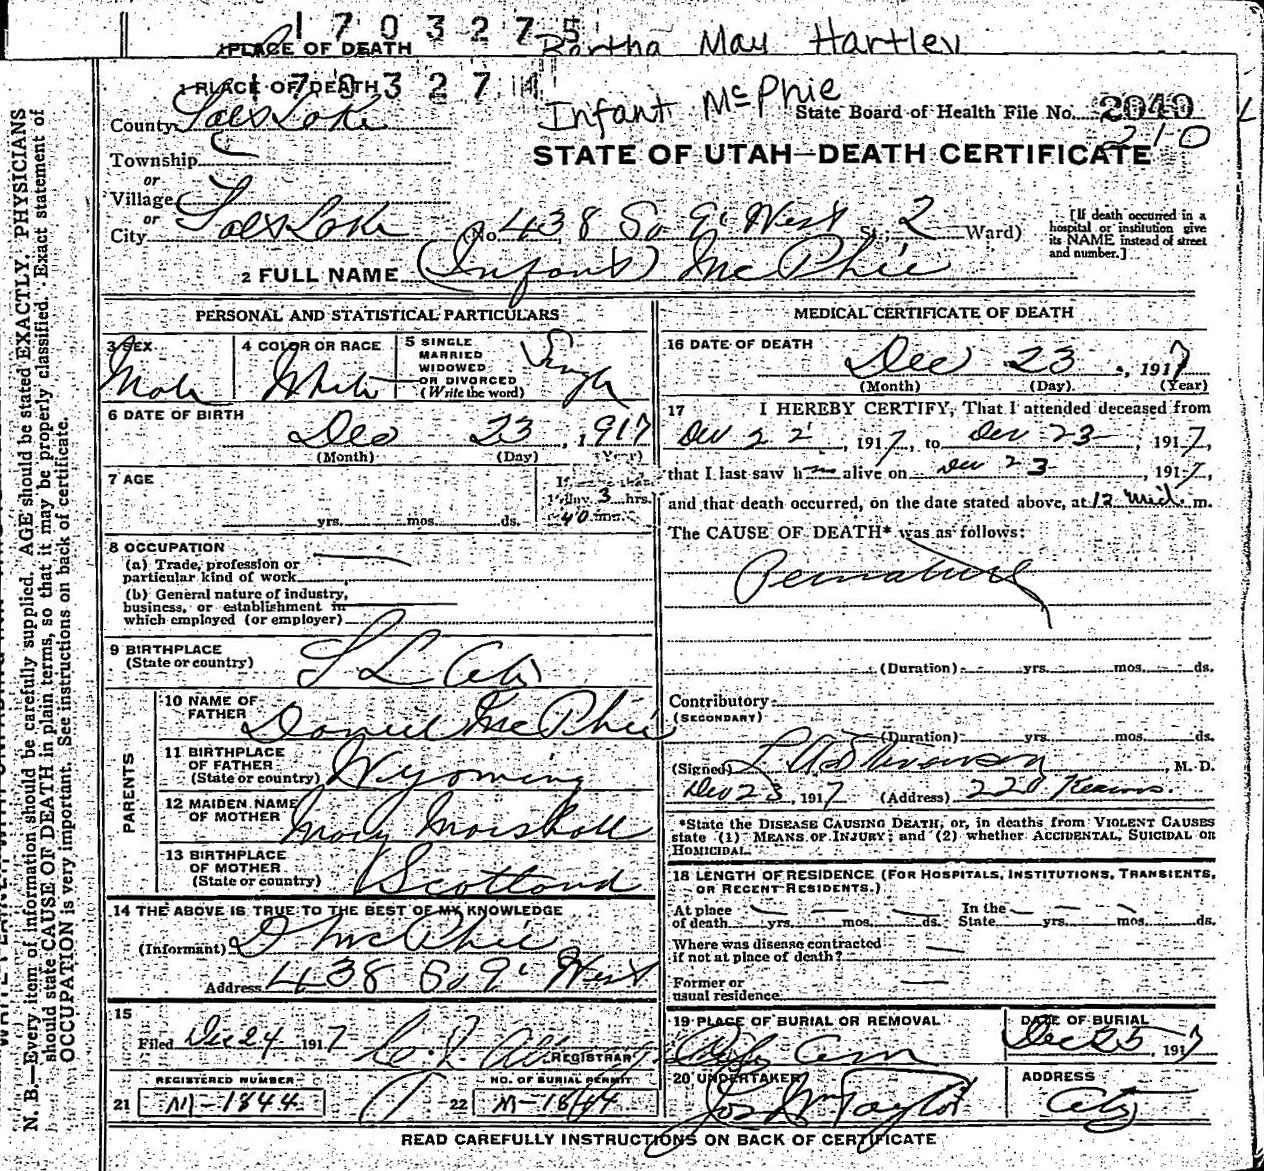 170327 5
PLACE OF DEATH Bertha May Hartley
1 PLACE OF DEATH 170327 4
Infant McPhie
State Board of Health File No. 2040
210
County Salt Lake
STATE OF UTAH—DEATH CERTIFICATE
Township
or
Village
or
City Salt Lake (No. 438 So 9' West St., 2 Ward)
[If death occurred in a
hospital or institution give
its NAME instead of street
and number.]
2 FULL NAME (Infant) McPhie
PERSONAL AND STATISTICAL PARTICULARS
3 SEX
Male
4 COLOR OR RACE
White
5 SINGLE
MARRIED
WIDOWED
OR DIVORCED
(Write the word)
Single
6 DATE OF BIRTH
Dec 23, 1917
(Month) (Day) (Year)
7 AGE
yrs. mos. ds.
If less than
1 day 3 hrs.
40 mn.
8 OCCUPATION
(a) Trade, profession or
particular kind of work
(b) General nature of industry,
business, or establishment in
which employed (or employer)
9 BIRTHPLACE
(State or country)
S L City
PARENTS
10 NAME OF
FATHER
Daniel McPhie
11 BIRTHPLACE
OF FATHER
(State or country)
Wyoming
12 MAIDEN NAME
OF MOTHER
Mary Marshall
13 BIRTHPLACE
OF MOTHER
(State or country)
Scotland
14 THE ABOVE IS TRUE TO THE BEST OF MY KNOWLEDGE
(Informant) D McPhie
Address 438 So 9' West
15
Filed Dec 24 1917
REGISTRAR
REGISTERED NUMBER
21 M-1844
NO. OF BURIAL PERMIT
22 M-1844
MEDICAL CERTIFICATE OF DEATH
16 DATE OF DEATH
Dec 23, 1917
(Month) (Day) (Year)
17 I HEREBY CERTIFY, That I attended deceased from
Dec 22, 1917, to Dec 23, 1917,
that I last saw h alive on Dec 23, 1917,
and that death occurred, on the date stated above, at 12 mid. m.
The CAUSE OF DEATH* was as follows:
Premature
(Duration) yrs. mos. ds.
Contributory
(SECONDARY)
(Duration) yrs. mos. ds.
(Signed) Stevenson, M. D.
Dec 23, 1917 (Address) 220 Kearns.
*State the DISEASE CAUSING DEATH, or, in deaths from VIOLENT CAUSES
state (1) MEANS OF INJURY; and (2) whether ACCIDENTAL, SUICIDAL OR
HOMICIDAL.
18 LENGTH OF RESIDENCE (FOR HOSPITALS, INSTITUTIONS, TRANSIENTS,
OR RECENT RESIDENTS.)
At place
of death yrs. mos. ds.
In the
State yrs. mos. ds.
Where was disease contracted
if not at place of death?
Former or
usual residence
19 PLACE OF BURIAL OR REMOVAL
City Cem
DATE OF BURIAL
Dec 25, 1917
20 UNDERTAKER
Jos Wm Taylor
ADDRESS
City
READ CAREFULLY INSTRUCTIONS ON BACK OF CERTIFICATE
N. B.—Every item of information should be carefully supplied. AGE should be stated EXACTLY. PHYSICIANS
should state CAUSE OF DEATH in plain terms, so that it may be properly classified. Exact statement of
OCCUPATION is very important. See instructions on back of certificate.